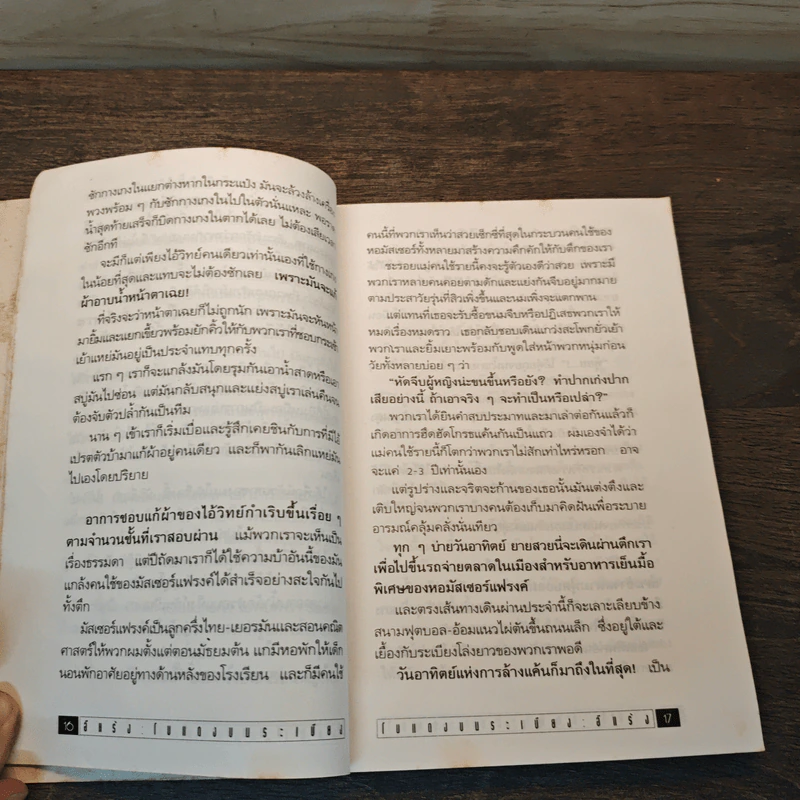 ซักกางเกงในแยกต่างหากในกระแป๋ง มันจะล้วงล้างเครื่อง
พวงพร้อม ๆ กับซักกางเกงในไปในตัวนั่นแหละ พอราด
น้ำสุดท้ายเสร็จก็บิดกางเกงในตากได้เลย ไม่ต้องเสียเวลา
ซักอีกที
จะมีก็แต่เพียงไอ้วิทย์คนเดียวเท่านั้นเองที่ใช้กางเกง
ในน้อยที่สุดและแทบจะไม่ต้องซักเลย เพราะมันจะแก้
ผ้าอาบน้ำหน้าตาเฉย!
ที่จริงจะว่าหน้าตาเฉยก็ไม่ถูกนัก เพราะมันจะหัน
มายิ้มและแยกเขี้ยวพร้อมยักคิ้วให้กับพวกเราที่ชอบ
เย้าแหย่มันอยู่เป็นประจำแทบทุกครั้ง
แรก ๆ เราก็จะแกล้งมันโดยรุมกันเอาน้ำสาดหรือ
สบู่มันไปซ่อน แต่มันกลับสนุกและแย่งสบู่เราเล่นคืน
ต้องจับตัวปล้ำกันเป็นทีม
นาน ๆ เข้าเราก็เริ่มเบื่อและรู้สึกเคยชินกับการที่มีไอ้
เปรตตัวบ้ามาแก้ผ้าอยู่คนเดียว และก็พากันเลิกแหย่มัน
ไปเองโดยปริยาย
อาการชอบแก้ผ้าของไอ้วิทย์กำเริบขึ้นเรื่อย ๆ
ตามจำนวนชั้นที่เราสอบผ่าน แม้พวกเราจะเห็นเป็น
เรื่องธรรมดา แต่ปีถัดมาเราก็ได้ใช้ความบ้าอันนี้ของมัน
แกล้งคนใช้ของมัสเซอร์แฟรงค์ได้สำเร็จอย่างสะใจกันไป
ทั้งตึก
มัสเซอร์แฟรงค์เป็นลูกครึ่งไทย-เยอรมันและสอนคณิต
ศาสตร์ให้พวกผมตั้งแต่ตอนมัธยมต้น แกมีหอพักให้เด็ก
นอนพักอาศัยอยู่ทางด้านหลังของโรงเรียน และก็มีคนใช้
16 อีแร้ง : โบแดงบนระเบียง
คนนี้ที่พวกเราเห็นว่าสวยเซ็กซี่ที่สุดในกระบวนคนใช้ของ
หอมัสเซอร์ทั้งหลายมาสร้างความคึกคักให้กับตึกของเรา
ชะรอยแม่คนใช้รายนี้คงจะรู้ตัวเองดีว่าสวย เพราะมี
พวกเราหลายคนคอยตามดักและแย่งกันจีบอยู่มากมาย
ตามประสาวัยรุ่นที่สิวเพิ่งขึ้นและนมเพิ่งจะแตกพาน
แต่แทนที่เธอจะรับซื้อขนมจีบหรือปฏิเสธพวกเราให้
หมดเรื่องหมดราว เธอกลับชอบเดินแกว่งสะโพกยั่วเย้า
พวกเราและยิ้มเยาะพร้อมกับพูดใส่หน้าพวกหนุ่มก่อน
วัยทั้งหลายบ่อย ๆ ว่า
“หัดจีบผู้หญิงน่ะขนขึ้นหรือยัง? ทำปากเก่งปาก
เสียอย่างนี้ ถ้าเอาจริง ๆ จะทำเป็นหรือเปล่า?”
พวกเราได้ยินคำสบประมาทและมาเล่าต่อกันแล้วก็
เกิดอาการฮึดฮัดโกรธแค้นกันเป็นแถว ผมเองจำได้ว่า
แม่คนใช้รายนี้ก็โตกว่าพวกเราไม่สักเท่าไหร่หรอก อาจ
จะแค่ 2-3 ปีเท่านั้นเอง
แต่รูปร่างและจริตจะก้านของเธอนั้นมันเต่งตึงและ
เติบใหญ่จนพวกเราบางคนต้องเก็บมาคิดฝันเพื่อระบาย
อารมณ์คลุ้มคลั่งนั่นเทียว
ทุก ๆ บ่ายวันอาทิตย์ ยายสวยนี่จะเดินผ่านตึกเรา
เพื่อไปขึ้นรถจ่ายตลาดในเมืองสำหรับอาหารเย็นมื้อ
พิเศษของหอมัสเซอร์แฟรงค์
และตรงเส้นทางเดินผ่านประจำนี้ก็จะเลาะเลียบข้าง
สนามฟุตบอล-อ้อมแนวไผ่ตันขึ้นถนนเล็ก ซึ่งอยู่ใต้และ
เยื้องกับระเบียงโล่งยาวของพวกเราพอดี
วันอาทิตย์แห่งการล้างแค้นก็มาถึงในที่สุด! เป็น
โบแดงบนระเบียง : อีแร้ง 17